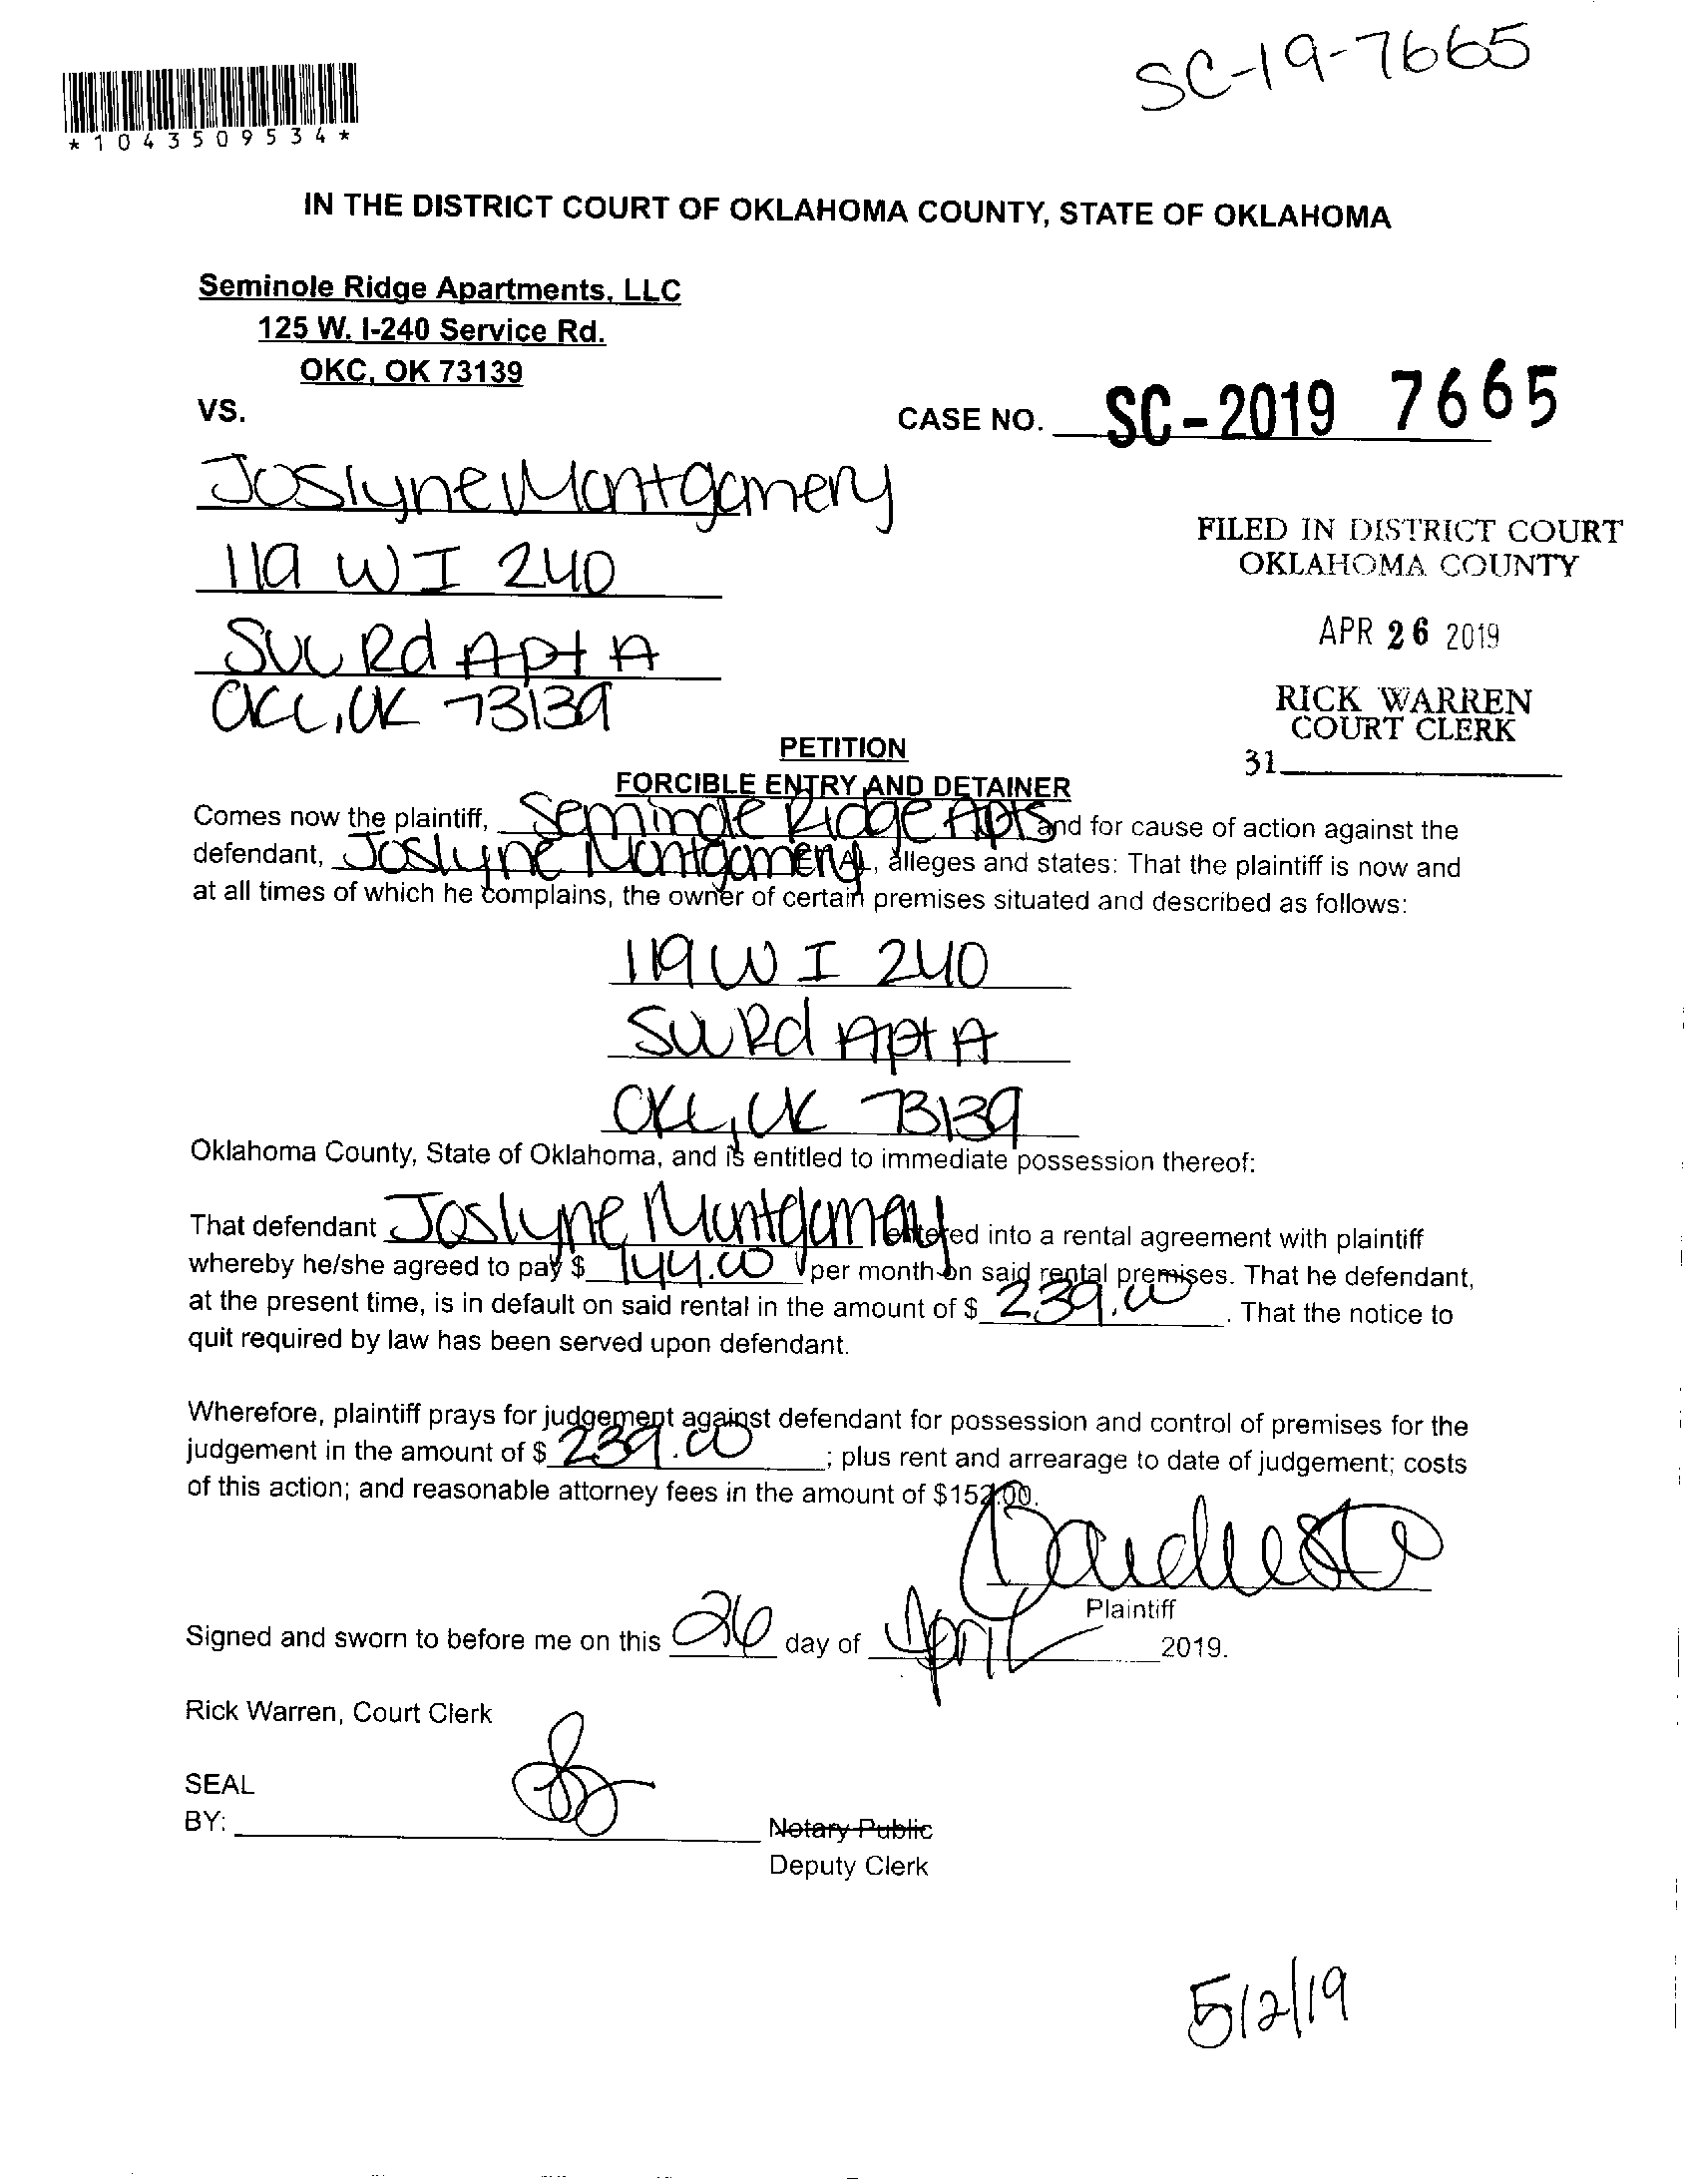 SC-19-7665
*1043509534*
IN THE DISTRICT COURT OF OKLAHOMA COUNTY, STATE OF OKLAHOMA
Seminole Ridge Apartments, LLC
125 W. I-240 Service Rd.
OKC, OK 73139
VS.
CASE NO. SC-2019 7665
Joslyne Montgomery
119 W I 240
Svc Rd Apt A
OKC, OK 73139
FILED IN DISTRICT COURT
OKLAHOMA COUNTY
APR 26 2019
RICK WARREN
COURT CLERK
31
PETITION
FORCIBLE ENTRY AND DETAINER
Comes now the plaintiff, Seminole Ridge Apts and for cause of action against the
defendant, Joslyne Montgomery ET AL, alleges and states: That the plaintiff is now and
at all times of which he complains, the owner of certain premises situated and described as follows:
119 W I 240
Svc Rd Apt A
OKC, OK 73139
Oklahoma County, State of Oklahoma, and is entitled to immediate possession thereof:
That defendant Joslyne Montgomery entered into a rental agreement with plaintiff
whereby he/she agreed to pay $ 744.00 per month on said rental premises. That he defendant,
at the present time, is in default on said rental in the amount of $ 239.00. That the notice to
quit required by law has been served upon defendant.
Wherefore, plaintiff prays for judgement against defendant for possession and control of premises for the
judgement in the amount of $ 239.00; plus rent and arrearage to date of judgement; costs
of this action; and reasonable attorney fees in the amount of $152.00.
Plaintiff
Signed and sworn to before me on this 26 day of April 2019.
Rick Warren, Court Clerk
SEAL
BY:
Notary Public
Deputy Clerk
5/2/19